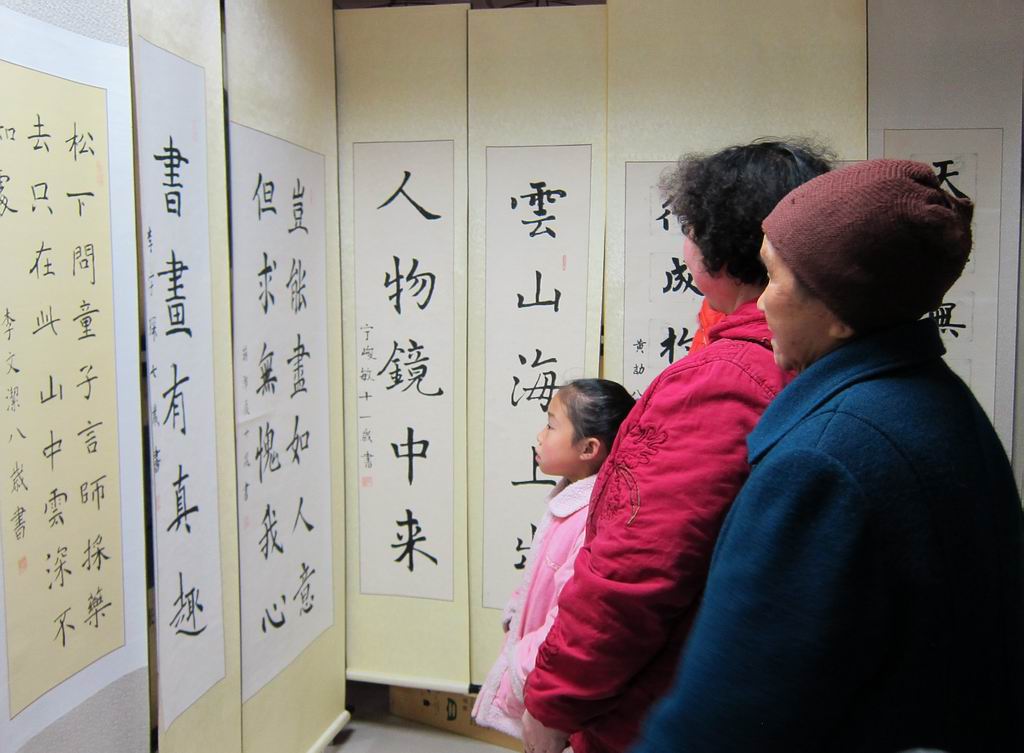 松下問童子言師採藥
去只在此山中雲深不
知處
李文潔八歲書
書畫有真趣
七歲書
豈能盡如人意
但求無愧我心
人物鏡中来
峻敏十一歲書
雲山海上
成
黄劼八
天
無